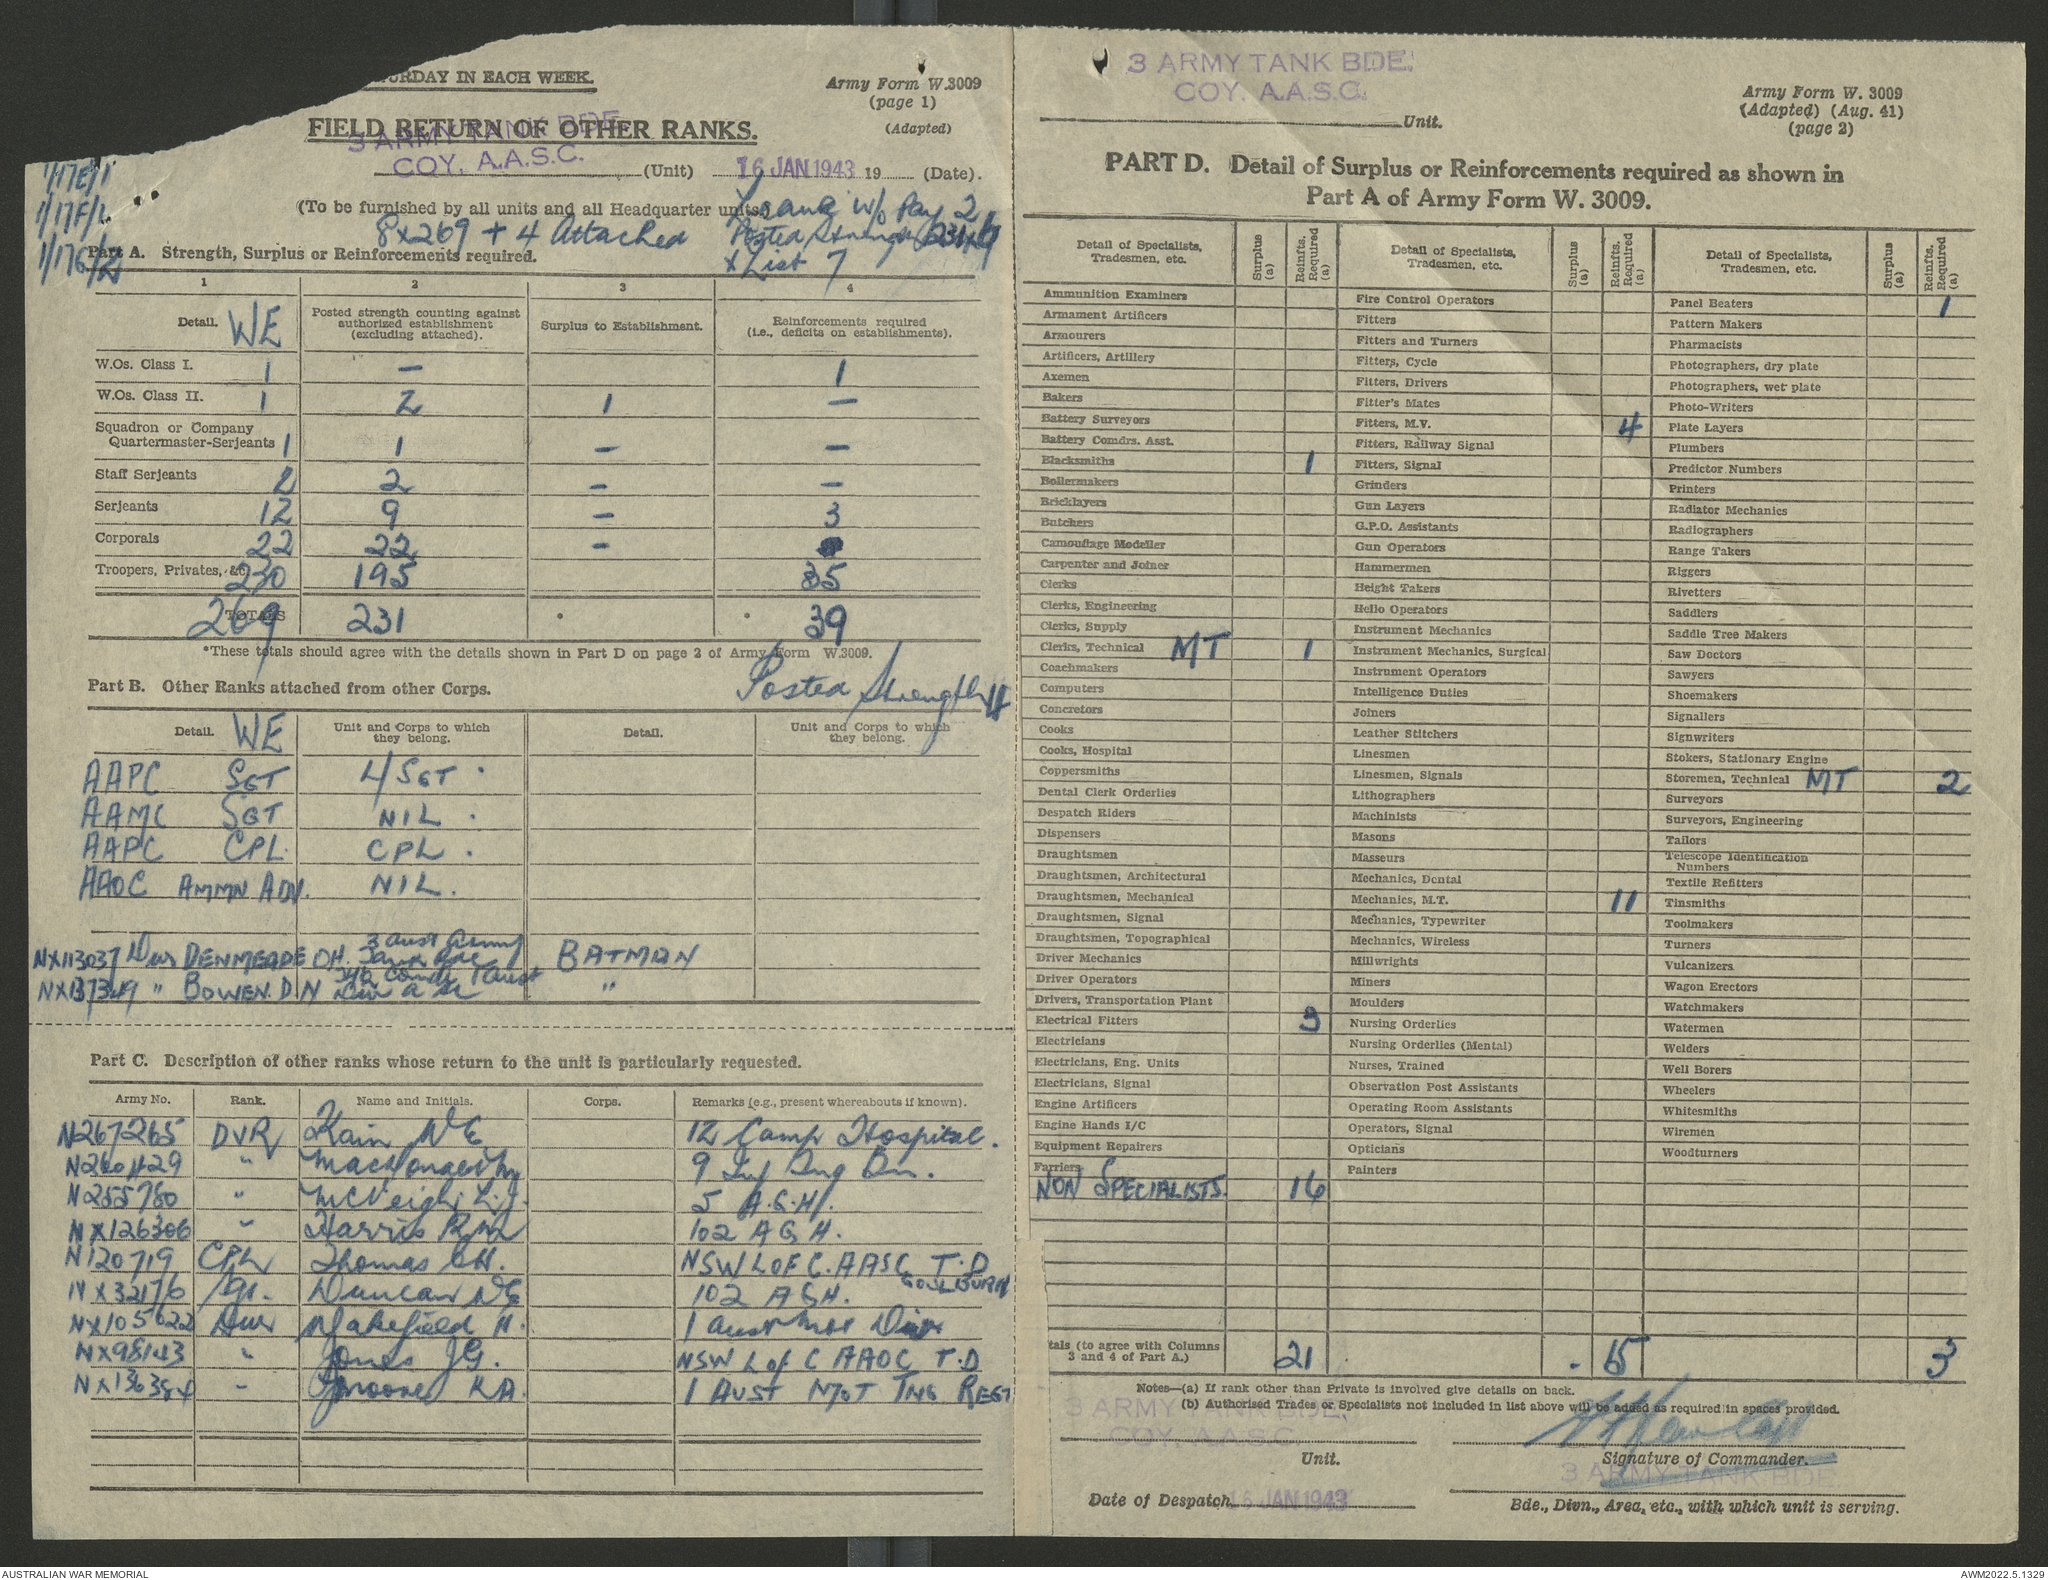 TURDAY IN EACH WEEK.
Army Form W.3009
(page 1)
(Adapted)
FIELD RETURN OF OTHER RANKS.
3 ARMY TANK BDE.
COY. A.A.S.C. (Unit) 16 JAN 1943 19 (Date).
1/17E/1
1/17F/1
1/17G/2
(To be furnished by all units and all Headquarter units.)
w/o Pay 2
8 x 269 + 4 Attached
Posted Strength 231
x List 7
Part A. Strength, Surplus or Reinforcements required.
1 2 3 4
Detail. WE
Posted strength counting against authorized establishment (excluding attached).
Surplus to Establishment.
Reinforcements required (i.e., deficits on establishments).
W.Os. Class I. 1 – 1
W.Os. Class II. 1 2 1 –
Squadron or Company
Quartermaster-Serjeants 1 1 – –
Staff Serjeants 2 2 – –
Serjeants 12 9 – 3
Corporals 22 22 –
Troopers, Privates, &c. 230 195 35
TOTALS 269 231 39
*These totals should agree with the details shown in Part D on page 2 of Army Form W.3009.
Part B. Other Ranks attached from other Corps.
Posted Strength
Detail. WE
Unit and Corps to which they belong.
Detail.
Unit and Corps to which they belong.
AAPC SGT L/SGT
AAMC SGT NIL
AAPC CPL CPL
AAOC AMMN ADV. NIL.
NX113037 Dvr DENMEADE DH. 3 Aust Army Tank Bde BATMAN
NX137349 " BOWEN. D N "
Part C. Description of other ranks whose return to the unit is particularly requested.
Army No. Rank. Name and Initials. Corps. Remarks (e.g., present whereabouts if known).
N267265 DVR Kain 12 Camp Hospital.
N260429 " 9 Inf Bn.
N255780 " McVeigh L.J. 5 A.G.H.
NX126306 " Harris 102 A G H.
N120719 CPL Thomas NSW L OF C. AASC T.D GOULBURN
NX32176 Duncan 102 A G H.
NX105622 Dvr Wakefield H. 1 Aust Mot Div
NX98143 " Jones J G. NSW L of C AAOC T.D
NX136384 " K A. 1 AUST MOT TNG REGT
3 ARMY TANK BDE.
COY. A.A.S.C.
Unit.
Army Form W. 3009
(Adapted) (Aug. 41)
(page 2)
PART D. Detail of Surplus or Reinforcements required as shown in
Part A of Army Form W. 3009.
Detail of Specialists, Tradesmen, etc. Surplus (a) Reinfts. Required (a)
Ammunition Examiners
Armament Artificers
Armourers
Artificers, Artillery
Axemen
Bakers
Battery Surveyors
Battery Comdrs. Asst.
Blacksmiths 1
Boilermakers
Bricklayers
Butchers
Camouflage Modeller
Carpenter and Joiner
Clerks
Clerks, Engineering
Clerks, Supply
Clerks, Technical MT 1
Coachmakers
Computers
Concretors
Cooks
Cooks, Hospital
Coppersmiths
Dental Clerk Orderlies
Despatch Riders
Dispensers
Draughtsmen
Draughtsmen, Architectural
Draughtsmen, Mechanical
Draughtsmen, Signal
Draughtsmen, Topographical
Driver Mechanics
Driver Operators
Drivers, Transportation Plant
Electrical Fitters 3
Electricians
Electricians, Eng. Units
Electricians, Signal
Engine Artificers
Engine Hands I/C
Equipment Repairers
Farriers
NON SPECIALISTS. 16
Detail of Specialists, Tradesmen, etc. Surplus (a) Reinfts. Required (a)
Fire Control Operators
Fitters
Fitters and Turners
Fitters, Cycle
Fitters, Drivers
Fitter's Mates
Fitters, M.V. 4
Fitters, Railway Signal
Fitters, Signal
Grinders
Gun Layers
G.P.O. Assistants
Gun Operators
Hammermen
Height Takers
Helio Operators
Instrument Mechanics
Instrument Mechanics, Surgical
Instrument Operators
Intelligence Duties
Joiners
Leather Stitchers
Linesmen
Linesmen, Signals
Lithographers
Machinists
Masons
Masseurs
Mechanics, Dental
Mechanics, M.T. 11
Mechanics, Typewriter
Mechanics, Wireless
Millwrights
Miners
Moulders
Nursing Orderlies
Nursing Orderlies (Mental)
Nurses, Trained
Observation Post Assistants
Operating Room Assistants
Operators, Signal
Opticians
Painters
Detail of Specialists, Tradesmen, etc. Surplus (a) Reinfts. Required (a)
Panel Beaters 1
Pattern Makers
Pharmacists
Photographers, dry plate
Photographers, wet plate
Photo-Writers
Plate Layers
Plumbers
Predictor Numbers
Printers
Radiator Mechanics
Radiographers
Range Takers
Riggers
Rivetters
Saddlers
Saddle Tree Makers
Saw Doctors
Sawyers
Shoemakers
Signallers
Signwriters
Stokers, Stationary Engine
Storemen, Technical MT 2
Surveyors
Surveyors, Engineering
Tailors
Telescope Identification Numbers
Textile Refitters
Tinsmiths
Toolmakers
Turners
Vulcanizers
Wagon Erectors
Watchmakers
Watermen
Welders
Well Borers
Wheelers
Whitesmiths
Wiremen
Woodturners
tals (to agree with Columns 3 and 4 of Part A.) 21 15 3
Notes—(a) If rank other than Private is involved give details on back.
(b) Authorised Trades or Specialists not included in list above will be added as required in spaces provided.
3 ARMY TANK BDE.
COY. A.A.S.C.
Unit.
Signature of Commander.
3 ARMY TANK BDE
Date of Despatch 16 JAN 1943
Bde., Divn., Area, etc., with which unit is serving.
AUSTRALIAN WAR MEMORIAL
AWM2022.5.1329